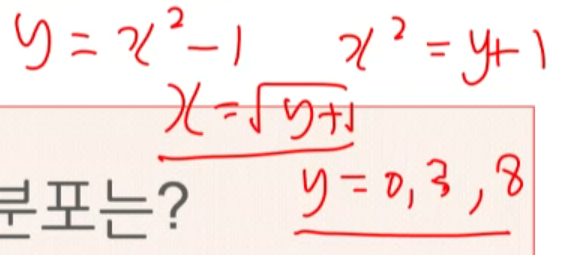 y = x² - 1   x² = y+1
x = √y+1
분포는?
y = 0, 3, 8